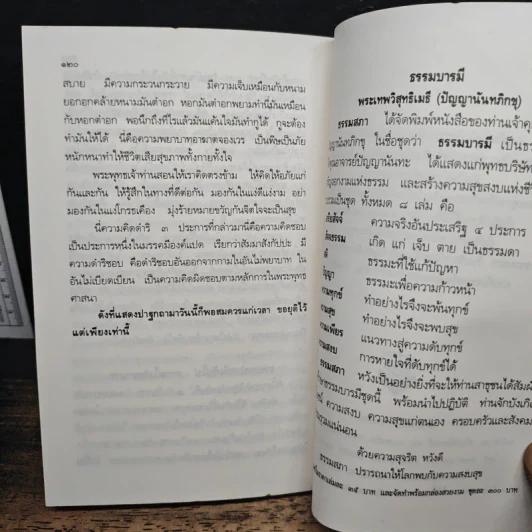 ๑๒๐
สบาย มีความกระวนกระวาย มีความเจ็บเหมือนกับหนาม
ยอกอกคล้ายหนามมันตำอก หอกมันตำอกพยามท่านี้มันเหมือน
กับหอกตำอก พอนึกถึงทีไรแล้วมันแค้นใจมันทำกูได้ กูจะต้อง
ทำมันให้ได้ นี่คือความพยาบาทอาฆาตจองเวร เป็นพิษเป็นภัย
หนักหนาทำให้ชีวิตเสียสุขภาพทั้งกายทั้งใจ
พระพุทธเจ้าท่านสอนให้เราคิดตรงข้าม ให้คิดให้อภัยแก่
กันและกัน ให้รู้สึกในทางที่ดีต่อกัน มองกันในแง่ดีแง่งาม อย่า
มองกันในแง่โกรธเคือง มุ่งร้ายหมายขวัญกันจิตใจจะเป็นสุข
นี่ความคิดดำริ ๓ ประการที่กล่าวมานี่คือความคิดชอบ
เป็นประการหนึ่งในมรรคมีองค์แปด เรียกว่าสัมมาสังกัปปะ มี
ความดำริชอบ คือดำริชอบอันออกจากกามในอันไม่พยาบาท ใน
อันไม่เบียดเบียน เป็นความคิดผิดชอบตามหลักการในพระพุทธ
ศาสนา
ดังที่แสดงปาฐกถามาวันนี้ก็พอสมควรแก่เวลา ขอยุติไว้
แต่เพียงเท่านี้
ธรรมบารมี
พระเทพวิสุทธิเมธี (ปัญญานันทภิกขุ)
ธรรมสภา ได้จัดพิมพ์หนังสือของท่านเจ้าคุ
ญานันทภิกขุ ในชื่อชุดว่า ธรรมบารมี เป็นธร
คุณอาจารย์ปัญญานันทะ ได้แสดงแก่พุทธบริษัท
งามแห่งธรรม และสร้างความสุขสงบแห่งชีวิ
เป็นชุด ทั้งหมด ๘ เล่ม คือ
ความจริงอันประเสริฐ ๔ ประการ
เกิด แก่ เจ็บ ตาย เป็นธรรมดา
ธรรมะที่ใช้แก้ปัญหา
ธรรมะเพื่อความก้าวหน้า
ทำอย่างไรจึงจะพ้นทุกข์
ทำอย่างไรจึงจะพบสุข
แนวทางสู่ความดับทุกข์
การหายใจที่ดับทุกข์ได้
ธรรมสภา หวังเป็นอย่างยิ่งที่จะให้ท่านสาธุชนได้สัมผั
ธรรมบารมีชุดนี้ พร้อมนำไปปฏิบัติ ท่านจักบังเกิ
ความสงบ ความสุขแก่ตนเอง ครอบครัวและสังคม
แน่นอน
ด้วยความสุจริต หวังดี
ธรรมสภา ปรารถนาให้โลกพบกับความสงบสุข
เล่มละ ๓๕ บาท และจัดทำพร้อมกล่องสวยงาม ชุดละ ๓๐๐ บาท